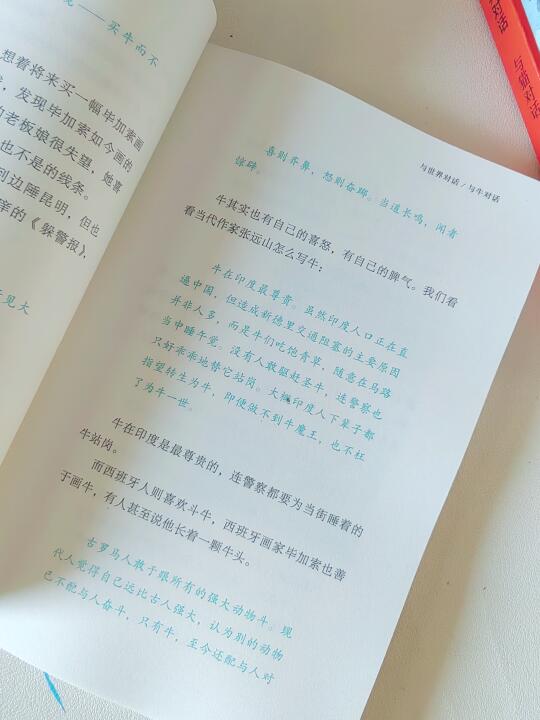 ——买牛而不
想着将来买一幅毕加索画
，发现毕加索如今的画
的老板娘很失望，她喜
也不是的线条。
到边陲昆明，但也
的《躲警报》，
见大
与世界对话/与牛对话
喜则齐鼻，怒则奋踯。当道长鸣，闻者
惊砗。
牛其实也有自己的喜怒，有自己的脾气。我们看
看当代作家张远山怎么写牛：
牛在印度最尊贵。虽然印度人口正在直
逼中国，但造成新德里交通阻塞的主要原因
并非人多，而是牛们吃饱青草，随意在马路
当中睡午觉。没有人敢驱赶圣牛，连警察也
只好乖乖地替它站岗。大概印度人下辈子都
指望转生为牛，即便做不到牛魔王，也不枉
了为牛一世。
牛在印度是最尊贵的，连警察都要为当街睡着的
牛站岗。
而西班牙人则喜欢斗牛，西班牙画家毕加索也善
于画牛，有人甚至说他长着一颗牛头。
古罗马人敢于跟所有的强大动物斗。现
代人觉得自己远比古人强大，认为别的动物
已不配与人奋斗，只有牛，至今还配与人对
与猫对话